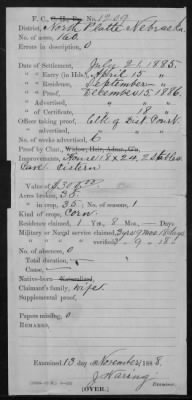 F. C. No. 1209
District, North Platte Nebraska
No. of acres, 160.
Errors in description, 0
Date of Settlement, July 21. 1885.
" " Entry (in Hd.) April 15 "
" " Residence, September "
" " Proof, December 15, 1886.
" " Advertised, "
" of Certificate, " 18 "
Officer taking proof, Clk of Dist Court
No. of weeks advertised, 6
Proof by Clmt., Widow, Heir, Admr., G'n.
Improvements, House 18 x 24, 2 Stables
Cave cistern
Value of $
Acres broken, 35.
" in crop, 35. No. of seasons, 1
Kind of crops, Corn.
Residence claimed, 1 Yrs. 8 Mos. — Days.
Military or Naval service claimed,
" " " verified
No. of absences, 0
Total duration,
Cause,
Native-born Naturalized,
Claimant's family, wife.
Supplemental proof,
Papers missing, 0
REMARKS,
Examined 13 day of November, 1888.
J. Haring,
Examiner.
[OVER.]